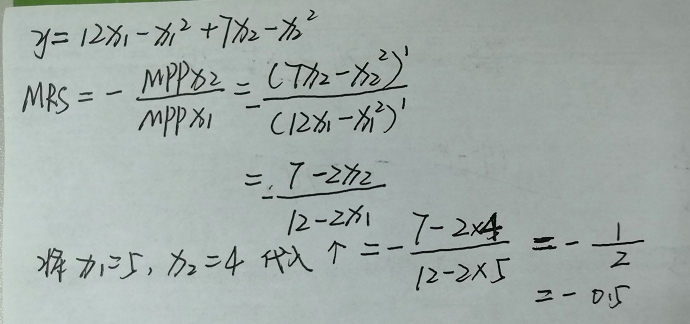 y = 12x₁ - x₁² + 7x₂ - x₂²
MRS = - MPPx₂ / MPPx₁ = - (7x₂ - x₂²)' / (12x₁ - x₁²)'
= - 7 - 2x₂ / 12 - 2x₁
将 x₁ = 5, x₂ = 4 代入 ↑ = - 7 - 2×4 / 12 - 2×5 = - 1 / 2
= - 0.5